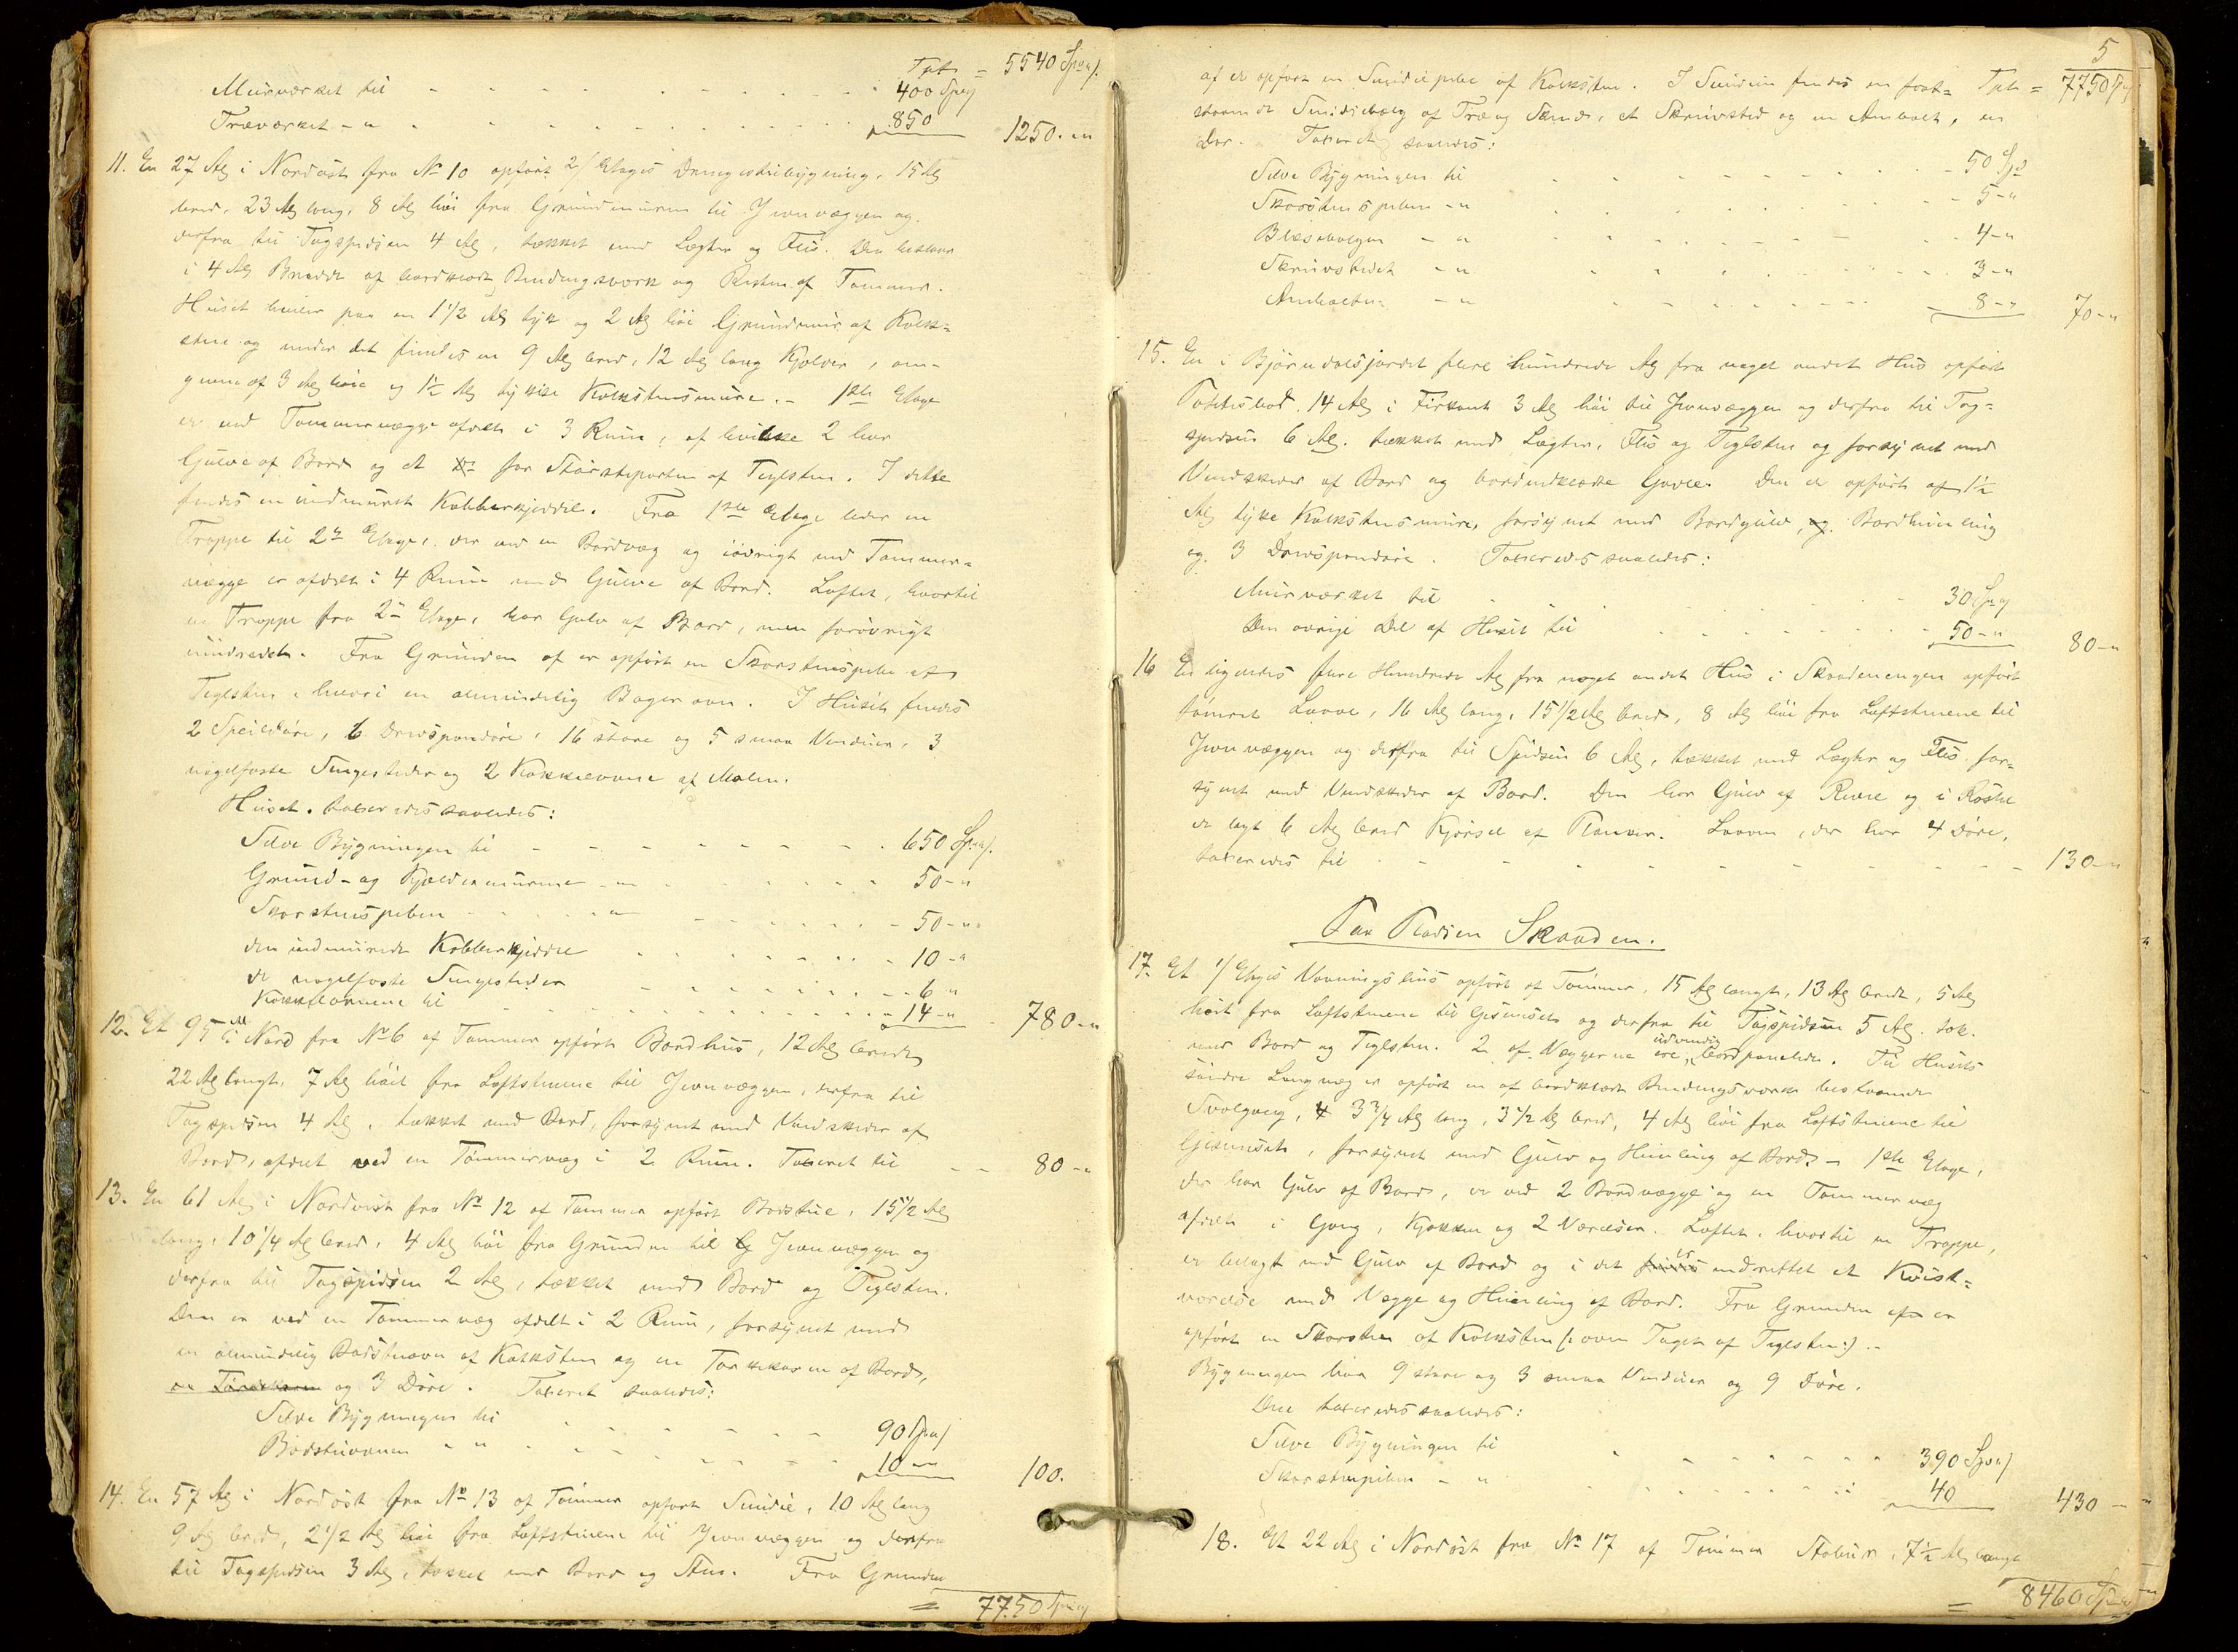 Tpt = 5540 Spd.
Muurværket til - - - 400 Spd
Træværket - " - - - 850 1250 - "
11. En 27 Al. i Nordöst fra No 10 opført 2/Etages Drengestubygning, 15 Al
bred, 23 Al lang, 8 Al höi fra Grundmuren til Jevnvæggen og
derfra til Tagspidsen 4 Al, tækket med Lægter og Flis. Den bestaar
i 4 Al Bredde af bordklædt Bindingsværk og Resten af Tømmer.
Huset hviler paa en 1 1/2 Al tyk og 2 Al höi Grundmuur af Kalk=
sten og under det findes en 9 Al bred, 12 Al lang Kjælder, om-
given af 3 Al höie og 1 1/2 Al tykke Kalkstensmure. - 1ste Etage
er ved Tømmervægge afdelt i 3 Rum, af hvilke 2 har
Gulve af Bord og et for Størsteparten af Teglsten. I dette
findes en indmuret Kobberkjeddel. Fra 1ste Etage leder en
Trappe til 2den Etage, der ved en Bordvæg og iøvrigt ved Tømmer-
vægge er afdelt i 4 Rum med Gulve af Bord. Loftet, hvortil
en Trappe fra 2den Etage, har Gulv af Bord, men forövrigt
uindredet. Fra Grunden af er opført en Skorstenspibe af
Teglsten, hvori en almindelig Bagerovn. I Huset findes
2 Speildøre, 6 Drevspøndøre, 16 store og 5 smaa Vinduer, 3
nagelfaste Sengesteder og 2 Kakkelovne af Malm.
Huset taxeredes saaledes:
Selve Bygningen til - - - 650 Spd.
Grund- og Kjældermurene - " - - - 50 - "
Skorstenspiben - " - - - 50 - "
den indmurede Kobberkjeddel - - - 10 - "
de nagelfaste Sengesteder - - - 6 "
Kakkelovnene til - - - 14 - " 780 - "
12. Et 95 Al i Nord fra No 6 af Tømmer opført Bordhus, 12 Al bredt,
22 Al langt, 7 Al höit fra Loftstuene til Jevnvæggen, derfra til
Tagspidsen 4 Al, tækket med Bord, forsynet med Vindskeder af
Bord, afdelt ved en Tömmervæg i 2 Rum. Taxeret til - - 80 - "
13. En 61 Al i Nordvest fra No 12 af Tømmer opført Badstue, 15 1/2 Al
lang, 10 1/4 Al bred, 4 Al höi fra Grunden til Jevnvæggen og
derfra til Tagspidsen 2 Al, tækket med Bord og Teglsten.
Den er ved en Tømmervæg afdelt i 2 Rum, forsynet med
en almindelig Badstuovn af Kalksten og en Tørkekarm af Bord,
og 3 Döre. Taxeret saaledes:
Selve Bygningen til - - - 90 Spd
Badstuovnen " " - - - 10 - " 100.
14. En 57 Al i Nordöst fra No 13 af Tömmer opført Smidie, 10 Al lang
9 Al bred, 2 1/2 Al höi fra Loftstuene til Jevnvæggen og derfra
til Tagspidsen 3 Al, tækket med Bord og Fra Grunden
= 7750 Spd
5
af er opført en Smidiepibe af Kalksten. I Smidien findes en fast= Tpt = 7750 Spd
staaende Smidiebælg af Træ og Skind, et Skruvsted og en Ambolt, en
Dør. Taxeret saaledes:
Selve Bygningen til - - - 50 Spd
Skorstenspiben - " - - - 5 - "
Blæsebælgen - " - - - 4 - "
Skruvstedet - " - - - 3 - "
Ambolten - " - - - 8 - " 70 - "
15. En i Bjørndalsjordet flere hundrede Al fra noget andet Hus opført
Potetesbod, 14 Al i Firkant 3 Al höi til Jevnvæggen og derfra til Tag=
spidsen 6 Al. tækket med Lægter, Flis og Teglsten og forsynet med
Vindskeder af Bord og bordindklædte Gavle. Den er opført af 1 1/2
Al tykke Kalkstensmure, forsynet med Bordgulv, Bordhimling
og 3 Drevspøndøre. Taxeredes saaledes:
Muurværket til - - - 30 Spd
Den øvrige Del af Huset til - - - 50 - " 80 - "
16 En ligeledes flere Hundrede Al fra noget andet Hus i Skaadenengen opført
tömret Laave, 16 Al lang, 15 1/2 Al bred, 8 Al höi fra Loftstuene til
Jevnvæggen og derfra til Spidsen 6 Al, tækket med Lægter og Flis for=
synet med Vindskeder af Bord. Den har Gulv af Revle og i Røstet
er lagt 6 Al bred Kjørsel af Planker. Laaven, der har 4 Döre,
taxeredes til - - - 130 - "
Paa Pladsen Skaaden.
17. Et 1/Etages Vaaningshus opført af Tömmer, 15 Al langt, 13 Al bredt, 5 Al
höit fra Loftstuene til Gesimset og derfra til Tagspidsen 5 Al. tæk.
med Bord og Teglsten. 2 af Væggene ere udvendig bordpanelede. Til Husets
söndre Langvæg er opført en af bordklædt Bindingsværk bestaaende
Svalgang, 3 3/4 Al lang, 3 1/2 Al bred, 4 Al höi fra Loftstuene til
Gesimset, forsynet med Gulv og Himling af Bord. - 1ste Etage,
der har Gulv af Bord, er ved 2 Bordvægge og en Tømmervæg
afdelt i Gang, Kjøkken og 2 Værelser. Loftet, hvortil en Trappe,
er belagt med Gulv af Bord og i det findes er indrettet et Kvist=
værelse med Vægge og Himling af Bord. Fra Grunden af er
opført en Skorsten af Kalksten (: oven Taget af Teglsten :). -
Bygningen har 9 store og 3 smaa Vinduer og 9 Døre.
Den taxeredes saaledes:
Selve Bygningen til - - - 390 Spd
Skorstenspiben - " - - - 40 430 - "
18. Et 22 Al i Nordöst fra No 17 af Tömmer Stabur, 7 1/2 Al langt
= 8460 Spd